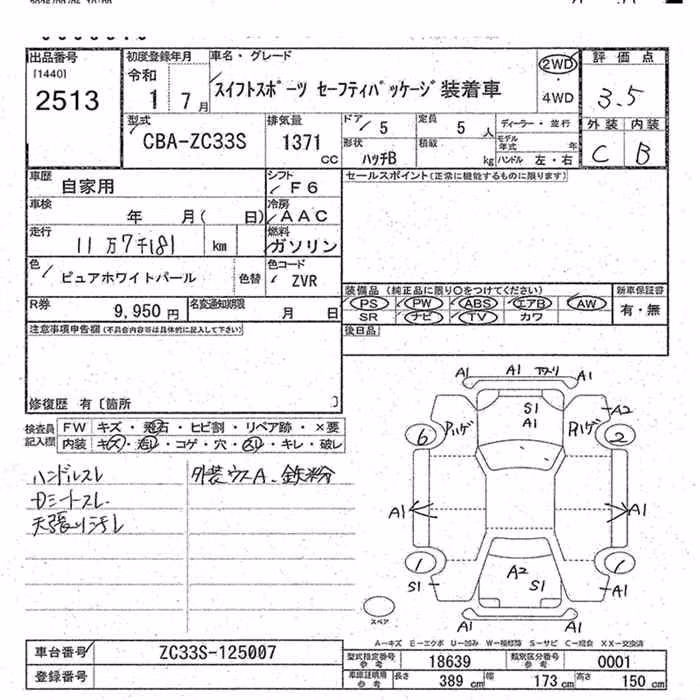 出品番号
[1440]
2513
初度登録年月
令和
1 7月
車名・グレード
スイフトスポーツ セーフティパッケージ装着車
2WD
4WD
評価点
3.5
外装 内装
C B
型式
CBA-ZC33S
排気量
1371
CC
ドア
5
定員
5 人
ディーラー・並行
形状
ハッチB
積載
kg
モデル年式 年
ハンドル 左・右
車歴
自家用
シフト
F6
セールスポイント(正常に機能するものに限ります)
車検
年 月( 日)
冷房
AAC
走行
11万7千181 km
燃料
ガソリン
色
ピュアホワイトパール
色替
色コード
ZVR
装備品 (純正品に限り○をつけてください)
新車保証書
PS PW ABS エアB AW
有・無
SR ナビ TV カワ
R券
9,950 円
名変通知期限
月 日
後日品
注意事項申告欄(不具合内容等は具体的に記入して下さい)
修復歴 有〔箇所 〕
検査員
記入欄
FW キズ・飛石・ヒビ割・リペア跡・×要
内装 キズ・汚レ・コゲ・穴・スレ・キレ・破レ
ハンドルスレ
Dシートスレ
天張り汚レ
外装ウスA、鉄粉
A1 A1 A1
S1
A1
Pハゲ
Pハゲ
A2
6 2
A1 A1
1 1
A2
S1
S1 A1
A1 A1
スペア
A-キズ E-エクボ U-凹み W-補修跡 S-サビ C-腐食 XX-交換済
車台番号
ZC33S-125007
登録番号
型式指定番号
参考
18639
類別区分番号
参考
0001
車庫証明用
参考
長さ 389 cm 幅 173 cm 高さ 150 cm